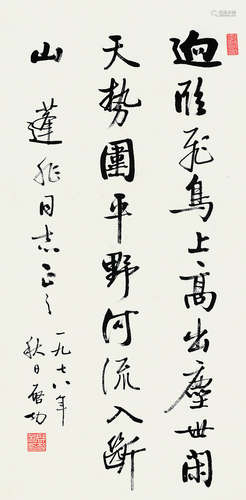 迥臨飛鳥上高出塵世間
天勢圍平野河流入斷
山 蓬同志正之 一九七八年
秋日啟功